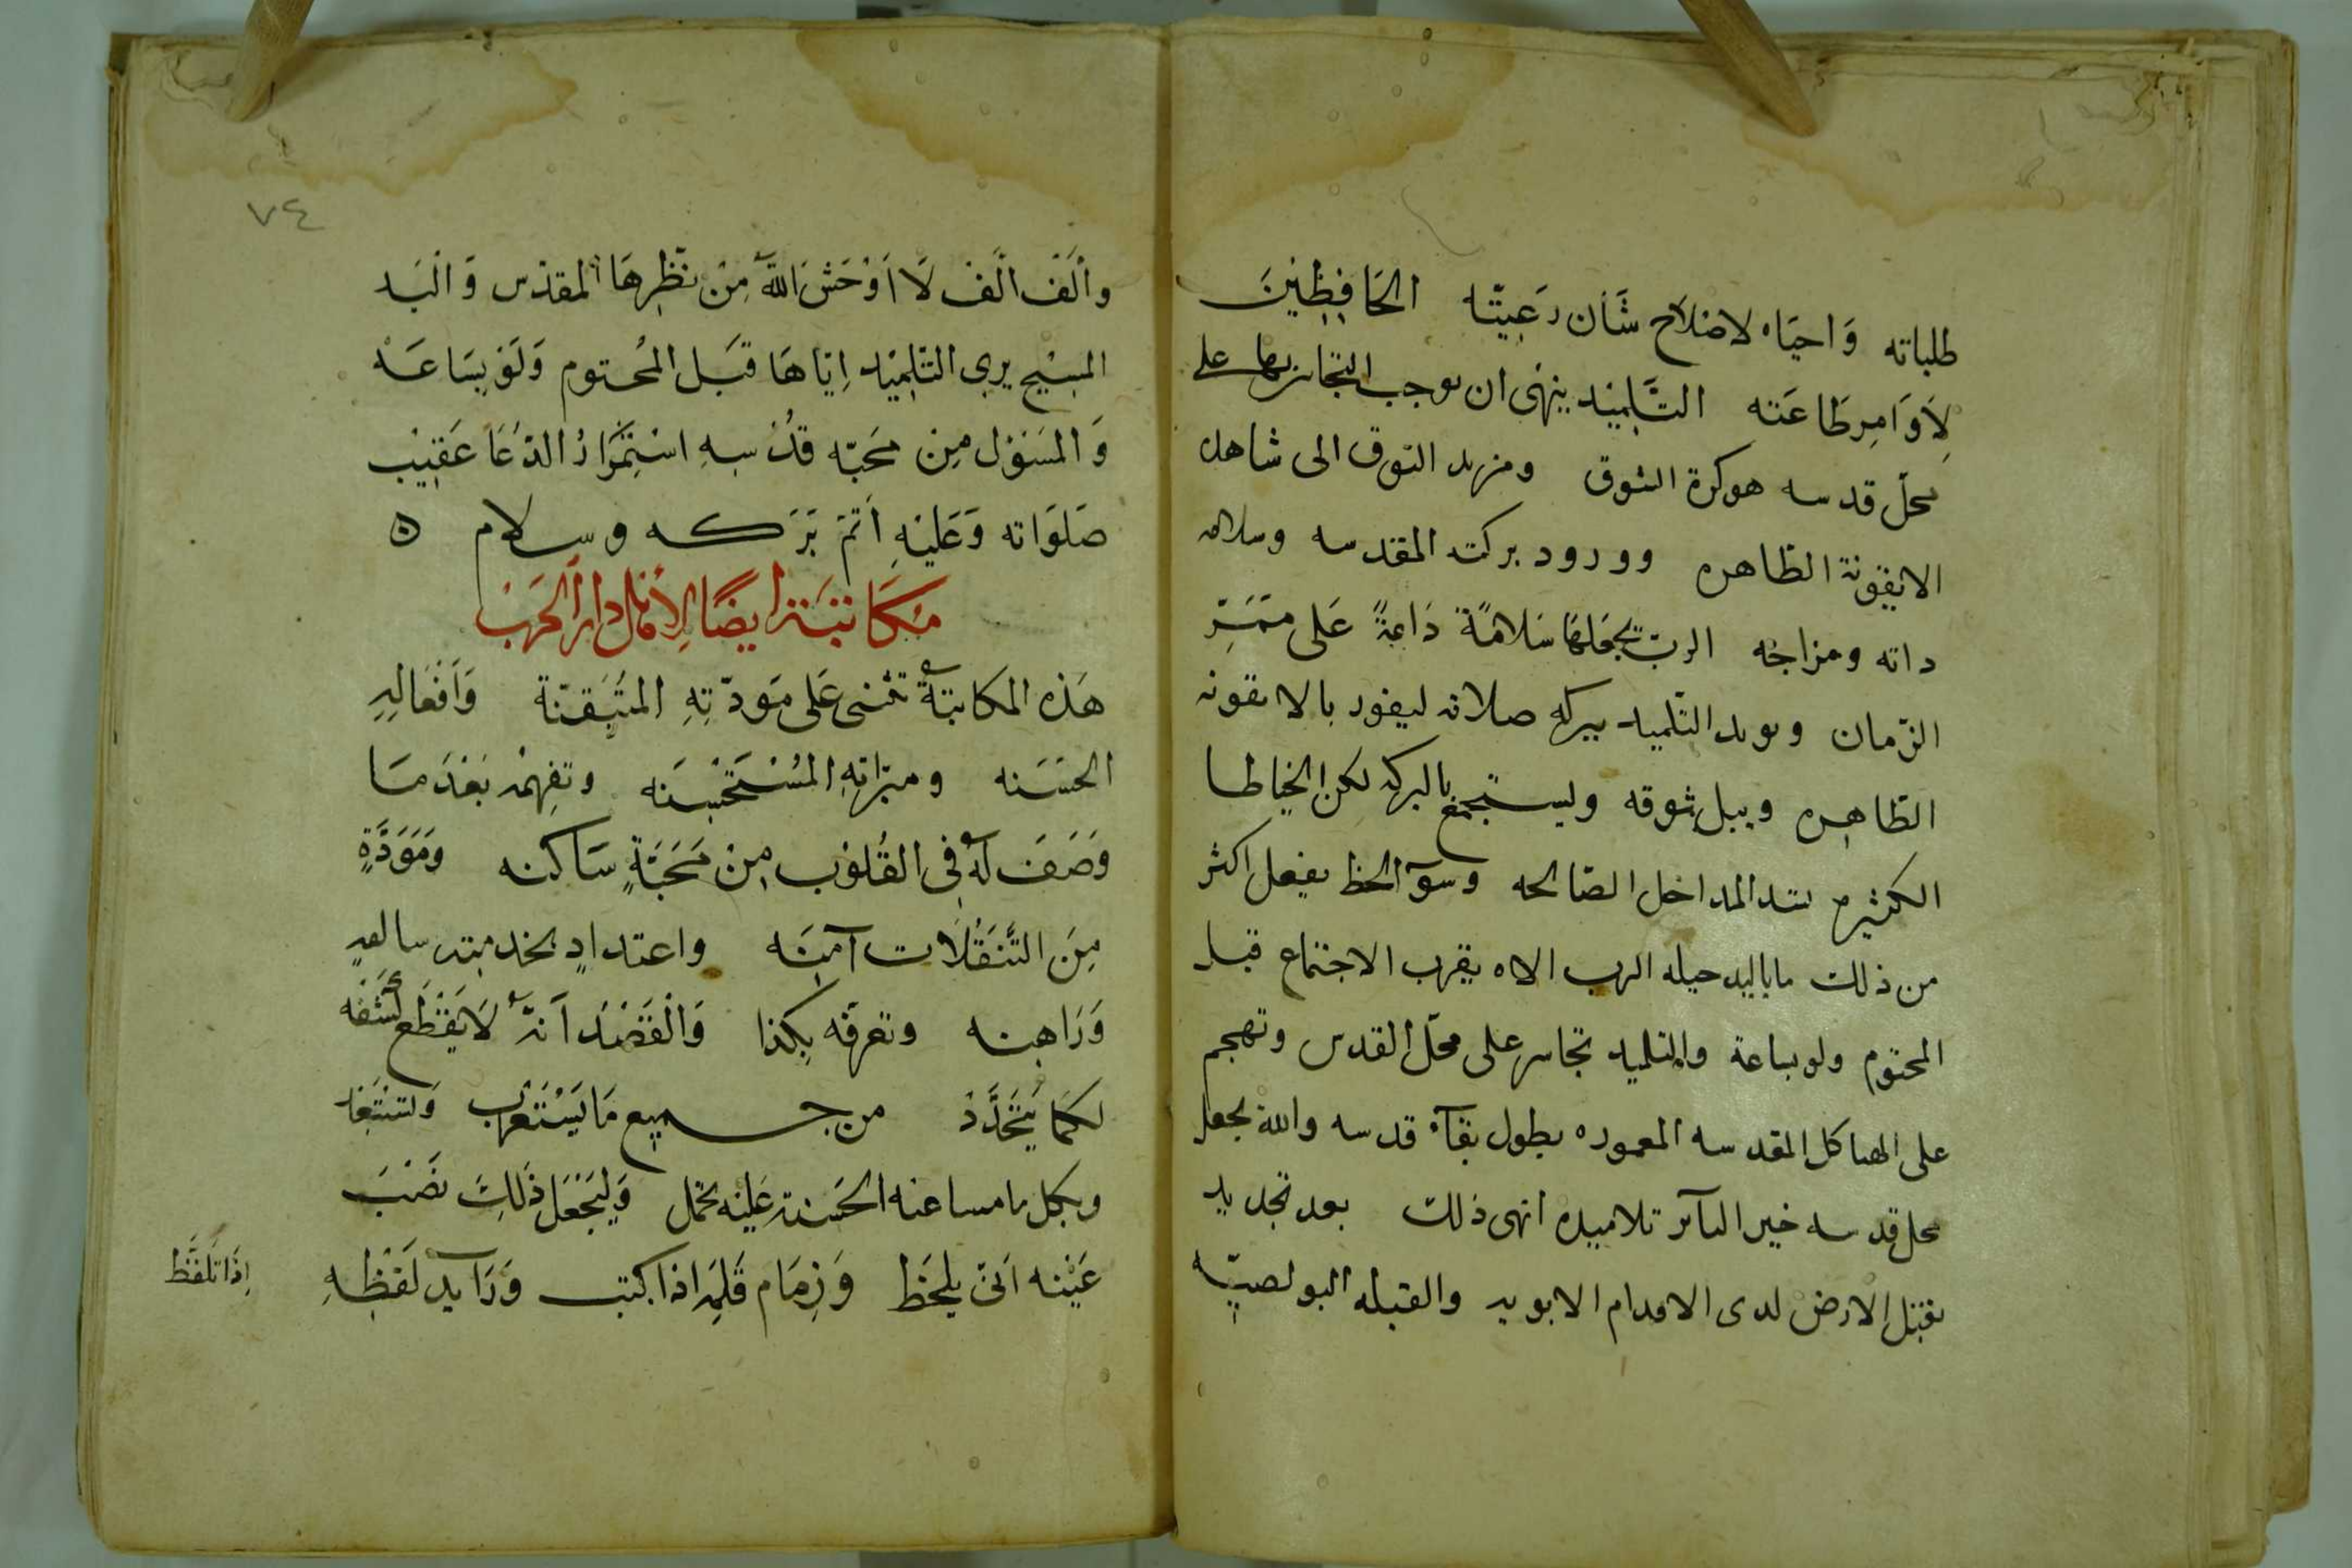 طلباته وَاحيَاه لاصْلاح شَأن رَعِيتّه الحَافِظِينَ
لِأوَامِر طَاعَته التَّلمِيْد ينهى ان موجب التجاسر بها على
محلّ قدسه هو كثرة الشوق ومزيد التوق الى شاهد
الايقونة الطاهره وورود بركته المقدسه وسلامه
داته ومزاجه الرب يجعلهَا سَلامًة دَاعةً عَلى ممَرِّ
الزّمان ويويد التّلميد ببركه صلاته ليفوز بالايقونه
الطّاهِره ويبل شوقه وليستجمع بالبركه لكن الخياطا
الكثيره تسد المداخل الصّالحه وسوّ الحظ يفعل اكثر
من ذلك ما باليد حيله الرب الاه يقرب الاجتماع قبل
المحتوم ولو بساعة والتلميد تجاسر على محلّ القدس وتهجم
على الهياكل المقدسه المعموره بطول بقآء قدسه والله يجعل
محل قدسه خير المآثر تلاميده انهى ذلك بعد تجديد
تقبيل الارض لدى الاقدام الابويه والقبله البولصيّه
٧٤
وألَف الَف لَا اَوْحَشَ اللهُ مِنْ نظَرِهَا المقدّس وَالَسيد
المسِيْح يرى التّلمِيْد اِيّاهَا قَبل المُحتوم وَلَوْ بسَاعَهْ
وَالمسَئول مِنْ محَبّه قُدْسِهِ اسْتِمْرَارُ الدّعَا عَقِيْب
صَلوَاته وَعَليْهِ أتَمّ بَرَكه وسلام ه
مُكَاتبَة ايضًا لِأمَاثل دار الحَرْب
هَذه المكاتبةُ تثنى عَلى مَودّتِهِ المتيَقنّة وَأفعَالِهِ
الحسَنه ومبرّاتِهِ المُسْتَحْسنَه وتفهِمْه بَعْدَ مَا
وَصَفَ لَهُ فى القُلوْب مِنْ مَحَبَّةٍ سَاكنه وَمَوَدَّةٍ
مِنَ التَّنَقُلَات آمِنَه واعتدادٍ بخدمته سالفه
وَرَاهنه وتعرفّه بكذا وَالْقَصْدُ اَنّهُ لَا يَقْطَع كُتُبَه
لكمَا يَتَجَدَّدْ من جميع مَا يَسْتَغْرب وَلتنتفا
وبكل ما مساعته الحَسَنة عَليْه تحمل وَلِيَجْعَل ذَلِكَ نصْبَ
عَيْنه اَنّى يلحَظ وَزِمَام قَلَمِه اذا كتب وَرَآيد لَفْظِهِ
اِذَا تلفَّظ